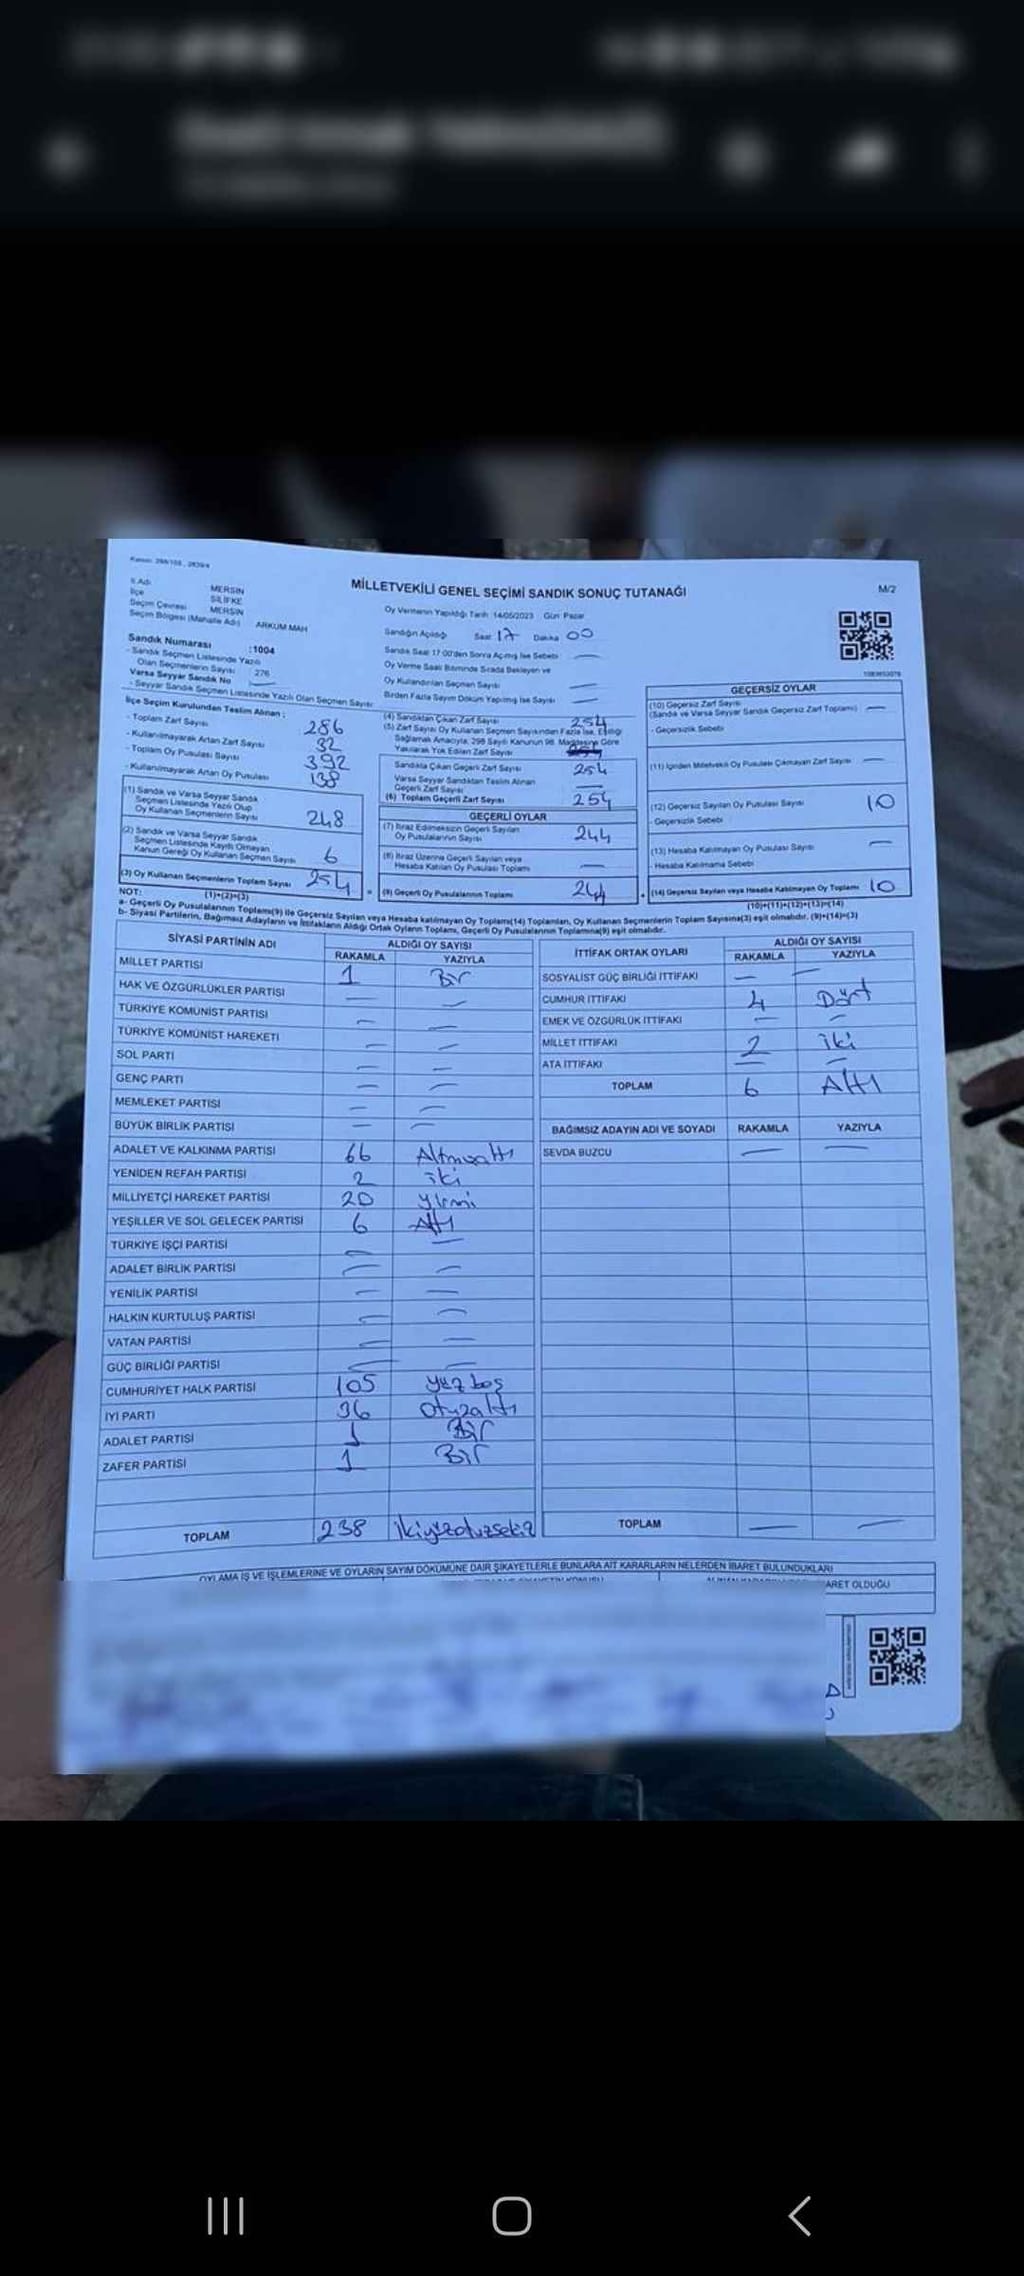 Kanun: 298/105, 2839/4
M/2
MİLLETVEKİLİ GENEL SEÇİMİ SANDIK SONUÇ TUTANAĞI
İl Adı MERSİN
İlçe SİLİFKE
Seçim Çevresi MERSİN
Seçim Bölgesi (Mahalle Adı) ARKUM MAH
Sandık Numarası :1004
- Sandık Seçmen Listesinde Yazılı
Olan Seçmenlerin Sayısı 276
Varsa Seyyar Sandık No
- Seyyar Sandık Seçmen Listesinde Yazılı Olan Seçmen Sayısı
Oy Vermenin Yapıldığı Tarih 14/05/2023 Gün Pazar
Sandığın Açıldığı Saat 17 Dakika 00
Sandık Saat 17:00'den Sonra Açmış İse Sebebi
Oy Verme Saati Bitiminde Sırada Bekleyen ve
Oy Kullandırılan Seçmen Sayısı
Birden Fazla Sayım Döküm Yapılmış İse Sayısı
İlçe Seçim Kurulundan Teslim Alınan :
- Toplam Zarf Sayısı 286
- Kullanılmayarak Artan Zarf Sayısı 32
- Toplam Oy Pusulası Sayısı 392
- Kullanılmayarak Artan Oy Pusulası 138
(1) Sandık ve Varsa Seyyar Sandık
Seçmen Listesinde Yazılı Olup
Oy Kullanan Seçmenlerin Sayısı 248
(2) Sandık ve Varsa Seyyar Sandık
Seçmen Listesinde Kayıtlı Olmayan
Kanun Gereği Oy Kullanan Seçmen Sayısı 6
(3) Oy Kullanan Seçmenlerin Toplam Sayısı 254
(1)+(2)=(3)
(4) Sandıktan Çıkan Zarf Sayısı 254
(5) Zarf Sayısı Oy Kullanan Seçmen Sayısından Fazla İse, Eşitliği
Sağlamak Amacıyla, 298 Sayılı Kanunun 98. Maddesine Göre
Yakılarak Yok Edilen Zarf Sayısı
Sandıkta Çıkan Geçerli Zarf Sayısı 254
Varsa Seyyar Sandıktan Teslim Alınan
Geçerli Zarf Sayısı
(6) Toplam Geçerli Zarf Sayısı 254
GEÇERLİ OYLAR
(7) İtiraz Edilmeksizin Geçerli Sayılan
Oy Pusulalarının Sayısı 244
(8) İtiraz Üzerine Geçerli Sayılan veya
Hesaba Katılan Oy Pusulası Toplamı
(9) Geçerli Oy Pusulalarının Toplamı 244
GEÇERSİZ OYLAR
(10) Geçersiz Zarf Sayısı
(Sandık ve Varsa Seyyar Sandık Geçersiz Zarf Toplamı)
- Geçersizlik Sebebi
(11) İçinden Milletvekili Oy Pusulası Çıkmayan Zarf Sayısı
(12) Geçersiz Sayılan Oy Pusulası Sayısı 10
- Geçersizlik Sebebi
(13) Hesaba Katılmayan Oy Pusulası Sayısı
- Hesaba Katılmama Sebebi
(14) Geçersiz Sayılan veya Hesaba Katılmayan Oy Toplamı 10
(10)+(11)+(12)+(13)=(14)
NOT:
a- Geçerli Oy Pusulalarının Toplamı(9) ile Geçersiz Sayılan veya Hesaba katılmayan Oy Toplamı(14) Toplamları, Oy Kullanan Seçmenlerin Toplam Sayısına(3) eşit olmalıdır. (9)+(14)=(3)
b- Siyasi Partilerin, Bağımsız Adayların ve İttifakların Aldığı Ortak Oyların Toplamı, Geçerli Oy Pusulalarının Toplamına(9) eşit olmalıdır.
SİYASİ PARTİNİN ADI ALDIĞI OY SAYISI
RAKAMLA YAZIYLA
MİLLET PARTİSİ 1 Bir
HAK VE ÖZGÜRLÜKLER PARTİSİ
TÜRKİYE KOMÜNİST PARTİSİ
TÜRKİYE KOMÜNİST HAREKETİ
SOL PARTİ
GENÇ PARTİ
MEMLEKET PARTİSİ
BÜYÜK BİRLİK PARTİSİ
ADALET VE KALKINMA PARTİSİ 66 Altmışaltı
YENİDEN REFAH PARTİSİ 2 iki
MİLLİYETÇİ HAREKET PARTİSİ 20 yirmi
YEŞİLLER VE SOL GELECEK PARTİSİ 6 Altı
TÜRKİYE İŞÇİ PARTİSİ
ADALET BİRLİK PARTİSİ
YENİLİK PARTİSİ
HALKIN KURTULUŞ PARTİSİ
VATAN PARTİSİ
GÜÇ BİRLİĞİ PARTİSİ
CUMHURİYET HALK PARTİSİ 105 yüz beş
İYİ PARTİ 36 otuzaltı
ADALET PARTİSİ 1 Bir
ZAFER PARTİSİ 1 Bir
TOPLAM 238 ikiyüzotuzsekiz
İTTİFAK ORTAK OYLARI ALDIĞI OY SAYISI
RAKAMLA YAZIYLA
SOSYALİST GÜÇ BİRLİĞİ İTTİFAKI
CUMHUR İTTİFAKI 4 Dört
EMEK VE ÖZGÜRLÜK İTTİFAKI
MİLLET İTTİFAKI 2 iki
ATA İTTİFAKI
TOPLAM 6 Altı
BAĞIMSIZ ADAYIN ADI VE SOYADI RAKAMLA YAZIYLA
SEVDA BUZCU
TOPLAM
OYLAMA İŞ VE İŞLEMLERİNE VE OYLARIN SAYIM DÖKÜMÜNE DAİR ŞİKAYETLERLE BUNLARA AİT KARARLARIN NELERDEN İBARET BULUNDUKLARI